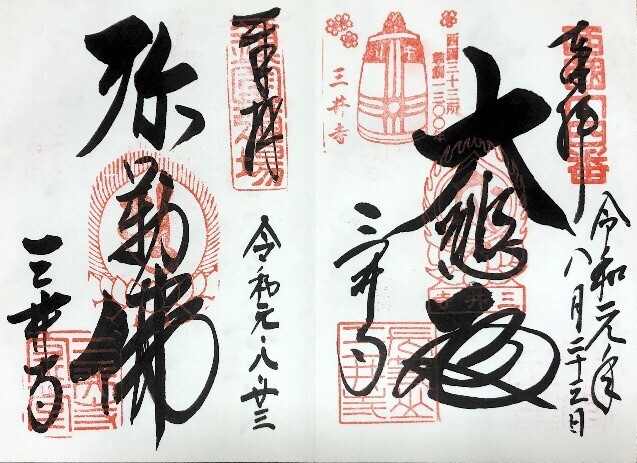 奉拝
西國十四番
令和元年
八月二十三日
大悲殿
三井寺
西國三十三所
草創一三〇〇
三井寺
奉拝
令和元・八・廿三
弥勒佛
三井寺